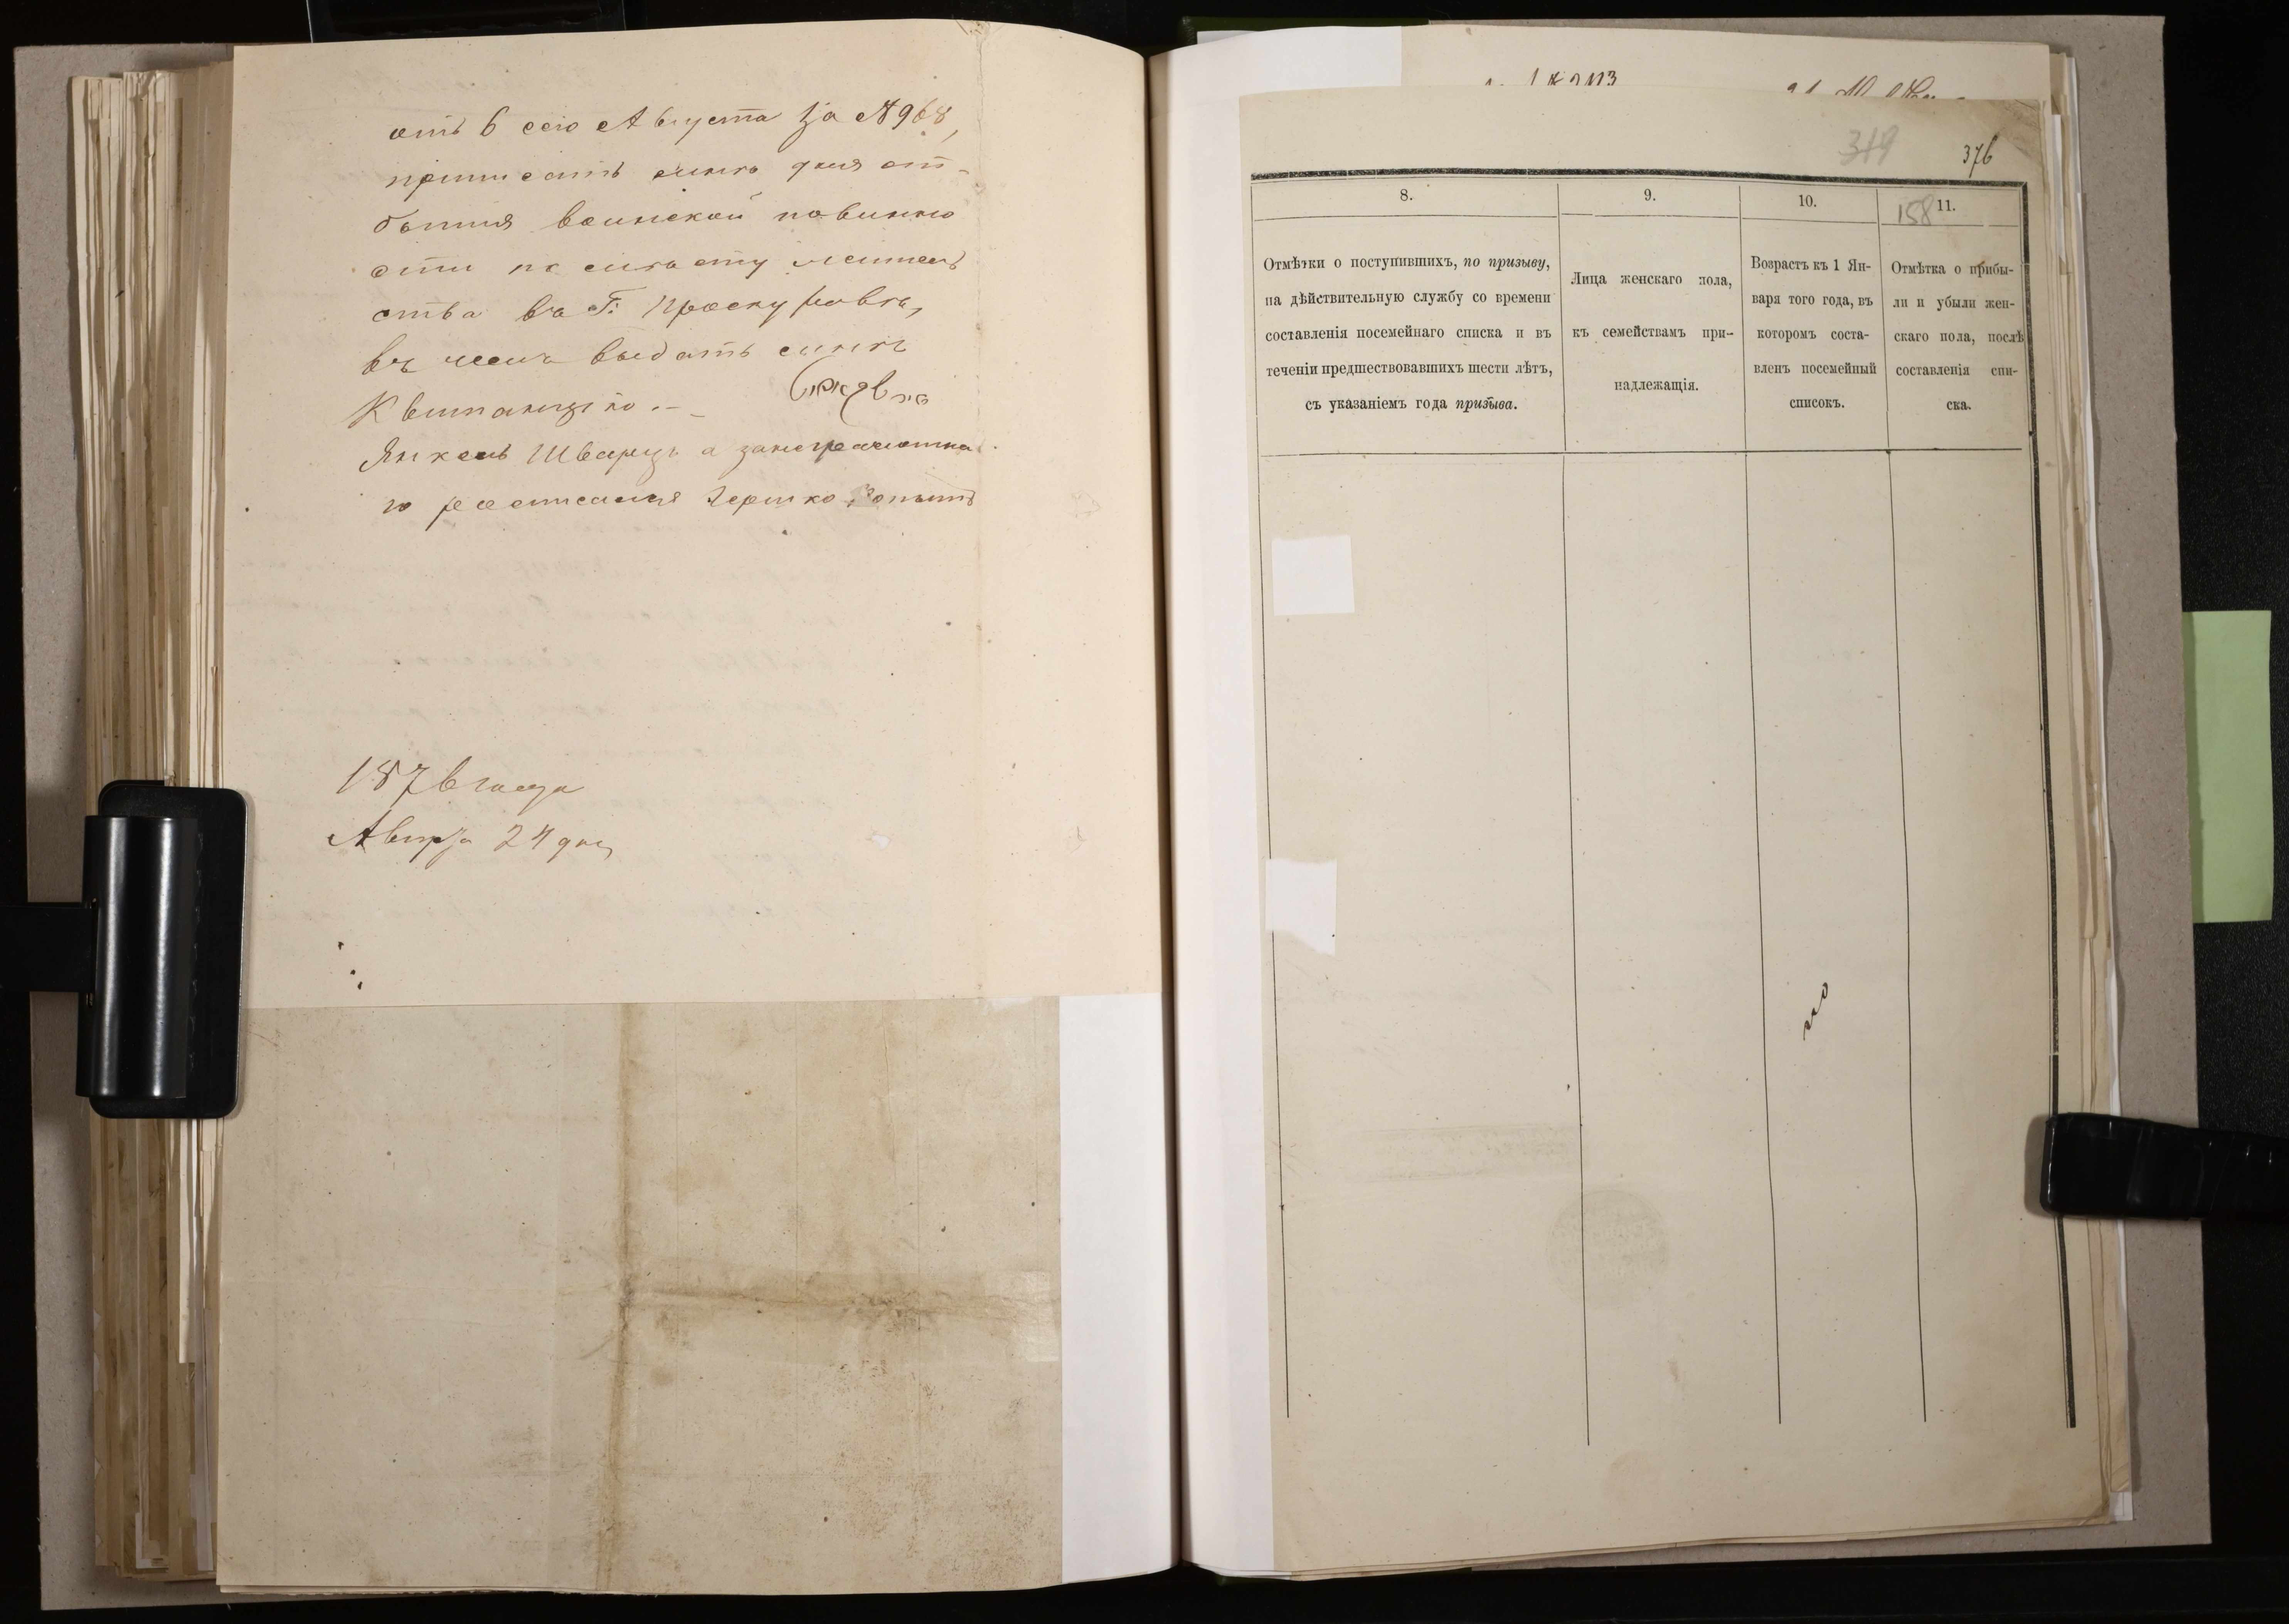 отъ 6 сего Августа за № 968,
приписать сына для от-
бытия воинской повинно
сти по ... жител
ства въ Г. Проскуровъ,
въ чемъ выдать сыну
Квитанцію.–
Янкель Шварцъ а за неграмотна
го росписался Гершко
1876 года
Августа 24 дня
319
376
8.
Отмѣтки о поступившихъ, по призыву,
на дѣйствительную службу со времени
составленія посемейнаго списка и въ
теченіи предшествовавшихъ шести лѣтъ,
съ указаніемъ года призыва.
9.
Лица женскаго пола,
къ семействамъ при-
надлежащія.
10.
Возрастъ къ 1 Ян-
варя того года, въ
которомъ соста-
вленъ посемейный
списокъ.
158
11.
Отмѣтка о прибы-
ли и убыли жен-
скаго пола, послѣ
составленія спи-
ска.